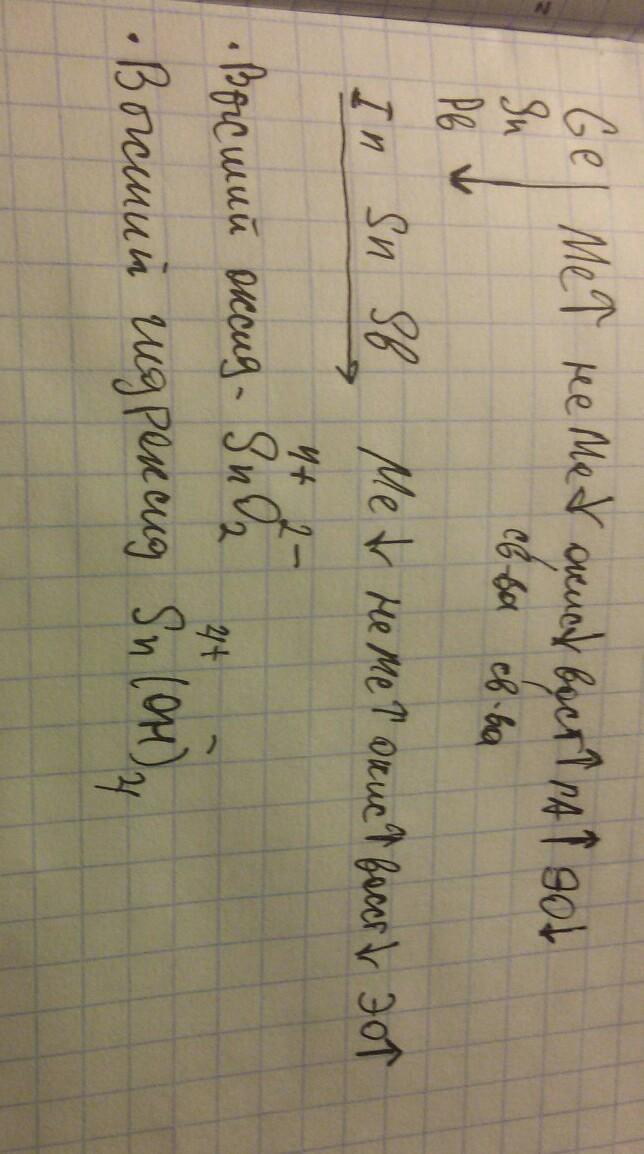 Ge Me↑ неMe↓ окис↓ восст↑ rA↑ ЭО↓
Sn св-ва св-ва
Pb ↓
In Sn Sb Me↓ неMe↑ окис↑ восст↓ ЭО↑
· Высший оксид - Sn⁴⁺O₂²⁻
· Высший гидроксид Sn⁴⁺(OH)⁻₄